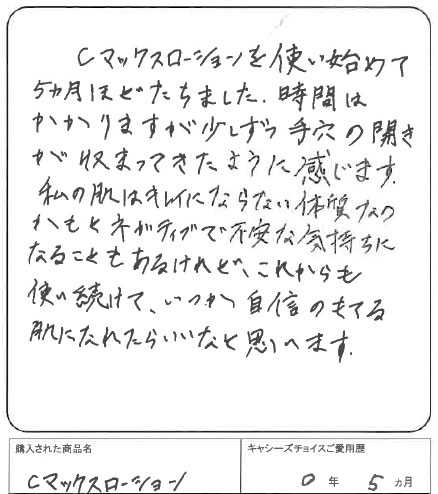 Cマックスローションを使い始めて
5ヵ月ほどたちました。時間は
かかりますが少しずつ毛穴の開き
が収まってきたように感じます。
私の肌はキレイにならない体質なの
かもとネガティブで不安な気持ちに
なることもあるけれど、これからも
使い続けて、いつか自信のもてる
肌になれたらいいなと思います。
購入された商品名
キャシーズチョイスご愛用歴
Cマックスローション
0年 5ヵ月